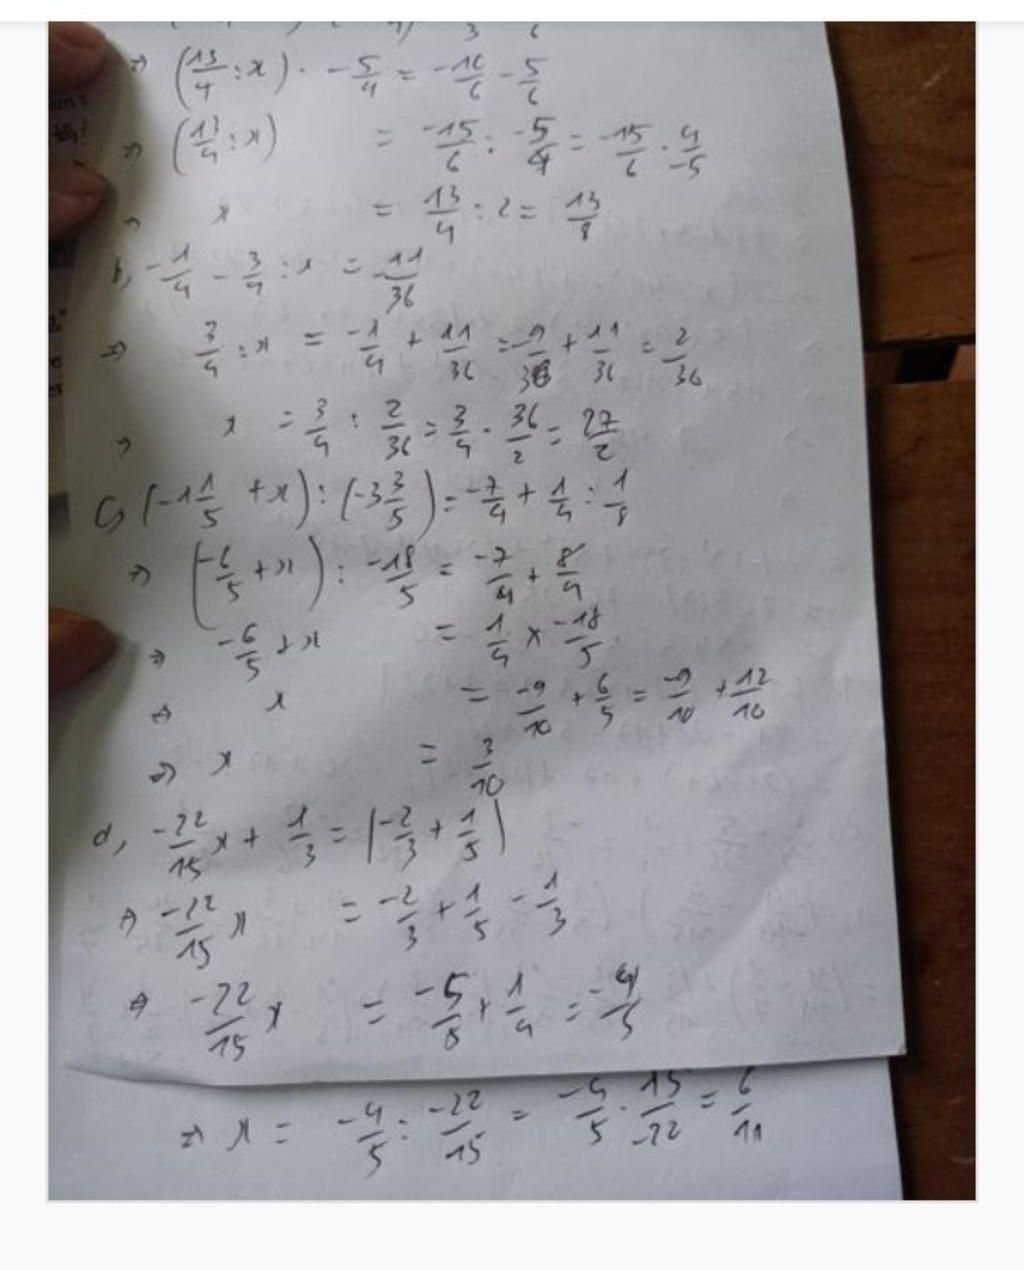 ⇒ (13/4 : x) · -5/4 = -10/6 - 5/6
⇒ (13/4 : x) = -15/6 : -5/4 = -15/6 · 4/-5
⇒ x = 13/4 : 2 = 13/8
b, -1/4 - 3/4 : x = -11/36
⇒ 3/4 : x = -1/4 + 11/36 = -9/36 + 11/36 = 2/36
⇒ x = 3/4 : 2/36 = 3/4 · 36/2 = 27/2
c, (-1 1/5 + x) : (-3 3/5) = -7/4 + 1/4 : 1/8
⇒ (-6/5 + x) : -18/5 = -7/4 + 8/4
⇒ -6/5 + x = 1/4 × -18/5
⇒ x = -9/10 + 6/5 = -9/10 + 12/10
⇒ x = 3/10
d, -22/15 x + 1/3 = |-2/3 + 1/5|
⇒ -22/15 x = -2/3 + 1/5 - 1/3
⇒ -22/15 x = -5/5 + 1/4 = -4/5
⇒ x = -4/5 : -22/15 = -4/5 · 15/-22 = 6/11